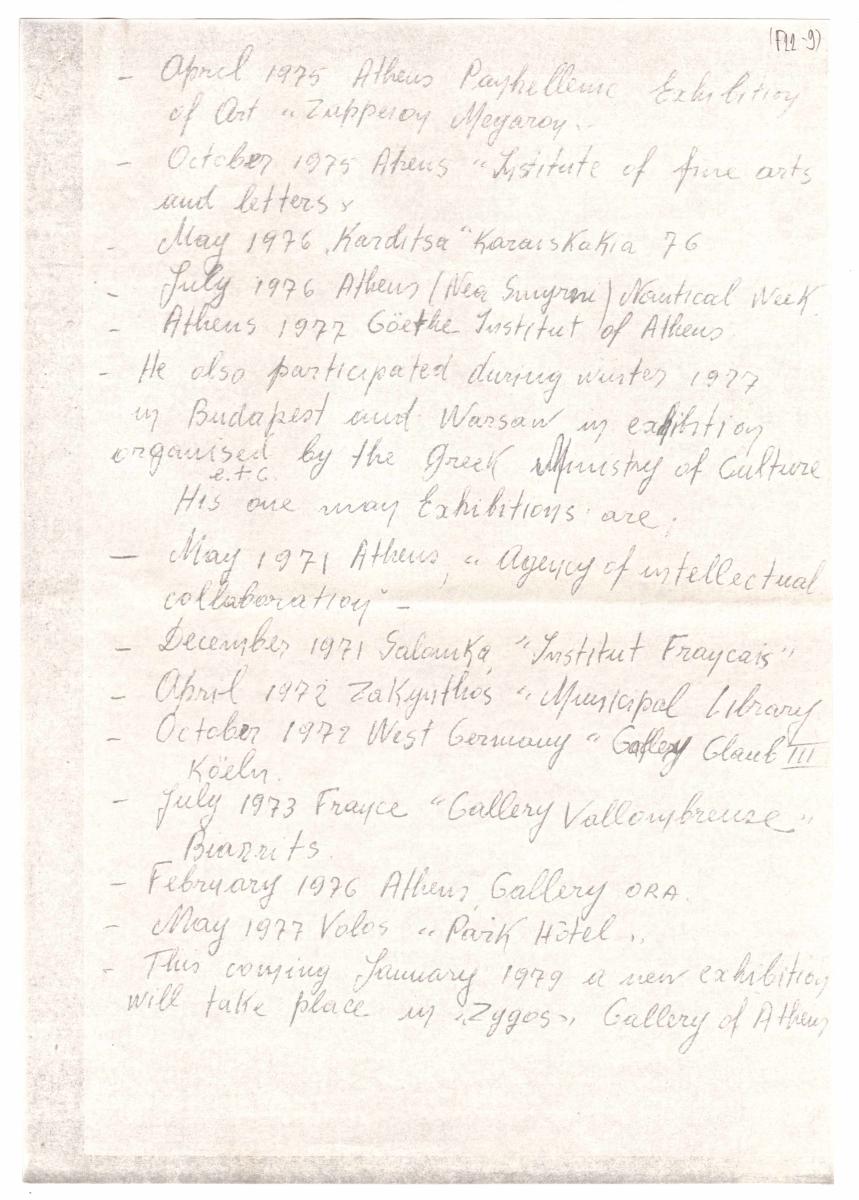 (F22-9)
- April 1975 Athens Panhellenic Exhibition
of Art "Zappeion Megaron"
- October 1975 Athens "Institute of fine arts
and letters"
- May 1976 "Karditsa" Karaiskakia 76
- July 1976 Athens (Nea Smyrni) Nautical Week.
- Athens 1977 Göethe Institut of Athens
- He also participated during winter 1977
in Budapest and Warsaw in exhibition
organised by the Greek Ministry of Culture
e.t.c.
His one man Exhibitions are;
- May 1971 Athens, "Agency of intellectual
collaboration" -
- December 1971 Salonika, "Institut Français"
- April 1972 Zakynthos "Municipal Library
- October 1972 West Germany "Gallery Glaub III
Köeln.
- July 1973 France "Gallery Vallombreuse"
Biarrits.
- February 1976 Athens, Gallery ORA.
- May 1977 Volos "Park Hôtel"
- This coming January 1979 a new exhibition
will take place in "Zygos" Gallery of Athens